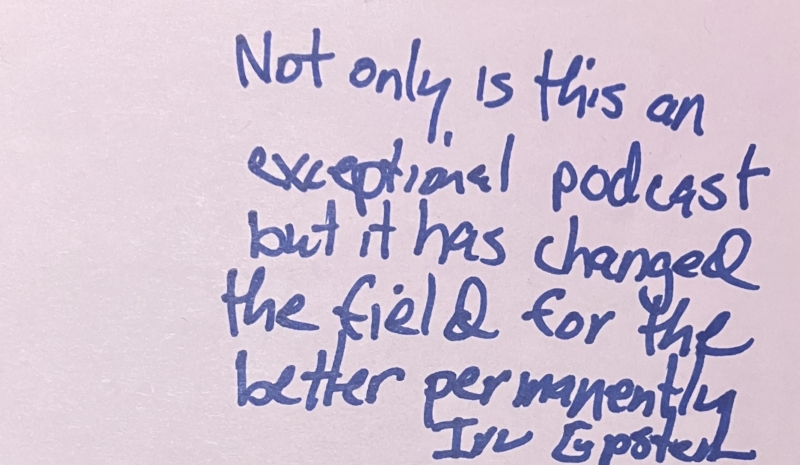 Not only is this an
exceptional podcast
but it has changed
the field for the
better permanently
Irv Epstein